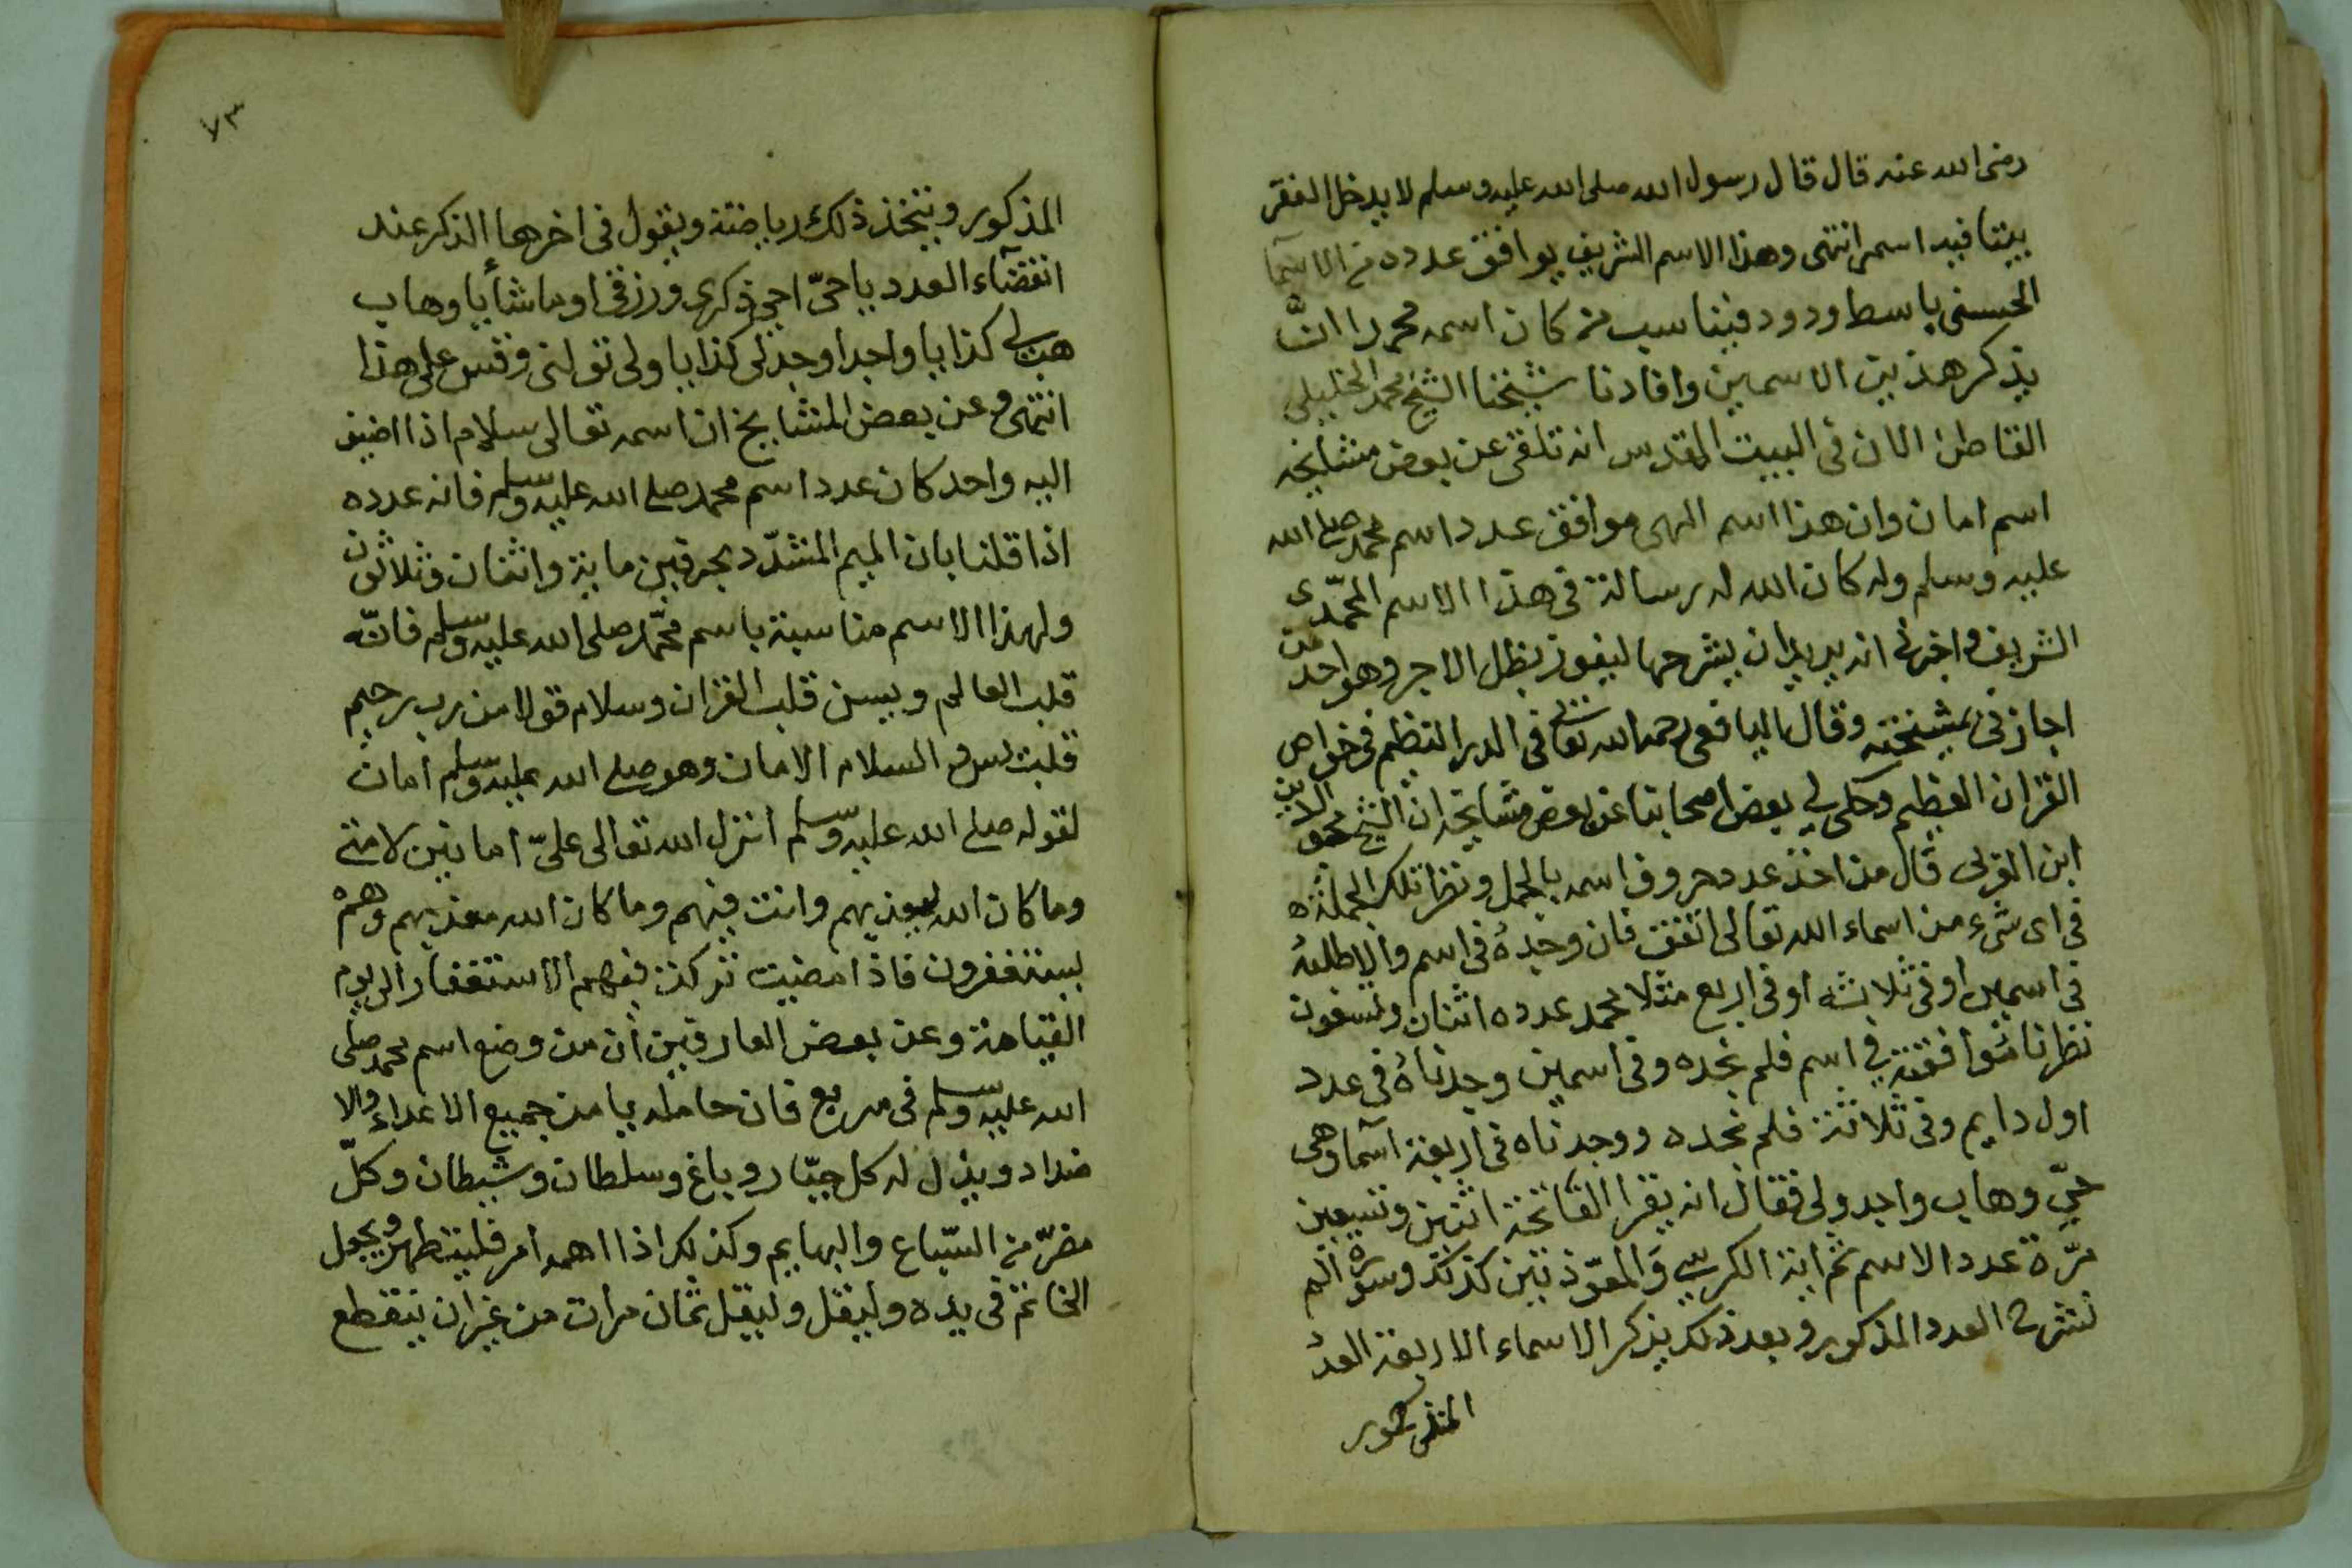 رضى الله عنه قال قال رسول الله صلى الله عليه وسلم لا يدخل الفقر
بيتا فيه اسمى انتهى وهذا الاسم الشريف يوافق عدده من الاسما
الحسنى باسط ودود فيناسب من كان اسمه محمدا انّ
يذكر هذين الاسمين وافادنا شيخنا الشيخ محمد الخليلى
القاطن الان فى البيت المقدس انه تلقى عن بعض مشايخه
اسم امان وان هذا اسم الهى موافق عدد اسم محمد صلى الله
عليه وسلم وله كان الله له رسالة فى هذا الاسم المحمّدى
الشريف واخبرنى انه يريد ان يشرحها ليفوز بظل الاجر وهو احد من
اجازنى بمشيخته وقال اليافعى رحمه الله تعالى فى الدر النظيم فى خواص
القران العظيم وحكى لى بعض اصحابنا عن بعض مشايخه ان الشيخ محيى الدين
ابن العربى قال من اخذ عدد حروف اسمه بالجمل ونظر تلك الجملة
فى اى شىء من اسماء الله تعالى اتفق فان وجده فى اسم والا طلبه
فى اسمين او فى ثلاثه او فى اربع مثلا محمد عدده اثنان وتسعون
نظرنا موافقته فى اسم فلم نجده وفى اسمين وجدناهُ فى عدد
اول دايم وفى ثلاثة فلم نجده ووجدناه فى اربعة آسما وهى
حيّ وهاب واجد ولى فقال انه يقرا الفاتحة اثنين وتسعين
مرّة عدد الاسم ثم اية الكرسي وَالمعوّذتين كذلك وسورة الم
نشرح العدد المذكور وبعد ذلك يذكر الاسماء الاربعة العدد
المذكور
٧٣
المذكور ويتخذ ذلك رياضة ويقول فى اخرها الذكر عند
انقضآء العدد يا حىّ احيي ذكرى ورزقى او ما شأ يا وهاب
هب لى كذا يا واجد اوجد لى كذا يا ولى تولنى وقس على هذا
انتهى وعن بعض المشايخ ان اسمه تعالى سلام اذا اضيف
اليه واحد كان عدد اسم محمد صلى الله عليه وسلم فانه عدده
اذا قلنا بان الميم المشدّد بحرفين ماية واثنان وثلاثون
ولهذا الاسم مناسبة باسم محمّد صلى الله عليه وسلم فانّه
قلب العالم ويسن قلب القران وسلام قولا من رب رحيم
قلب يس و السلام الامان وهو صلى الله عليه وسلم امان
لقوله صلى الله عليه وسلم انزل الله تعالى علىّ امانين لامتى
وما كان الله ليعذبهم وانت فيهم وما كان الله معذبهم وهم
يستغفرون فاذا مضيت تركت فيهم الاستغفار الى يوم
القيامة وعن بعض العارفين أن من وضع اسم محمد صلى
الله عليه وسلم فى مربع فان حامله يامن جميع الاعداء والا
ضداد ويذل له كل جبّار وباغ وسلطان وشيطان وكلّ
مضرّ من السّباع والبهايم وكذلك اذا اهمه امر فليتطهر ويجعل
الخاتم فى يده وليقل وليقل ثمان مرات من غير ان ينقطع